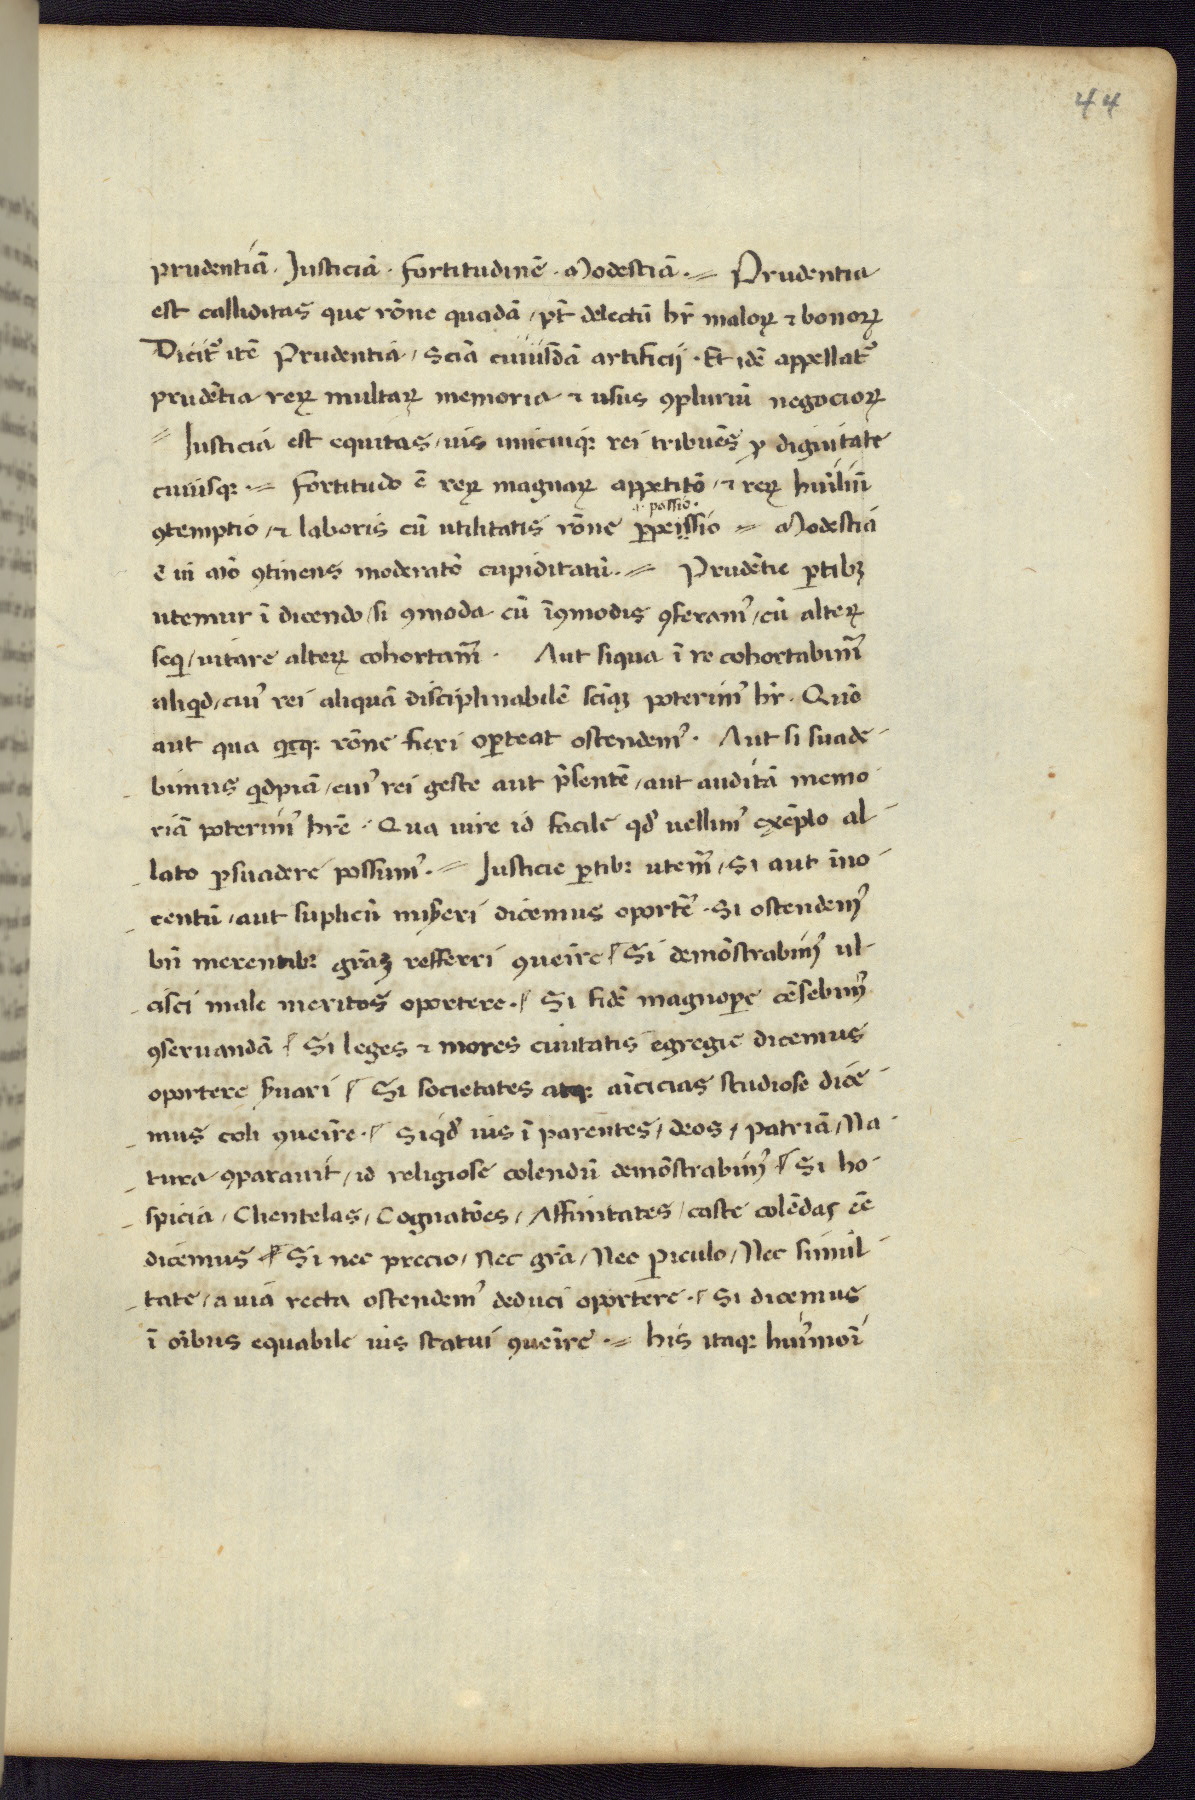 44
prudentiā. Justiciā. fortitudinē. Modestiā. // Prudentia
est calliditas que rōne quadā / pt̄ delectū hr̄ maloꝝ ⁊ bonoꝝ
Dicit᷑ itē Prudentia / Sciā cuiusdā artificij. Et idē appellat᷑
prudētia reꝝ multaꝝ memoria ⁊ usus ꝯpluriū negocioꝝ
// Justicia est equitas / uis unicuiqꝫ rei tribuēs ꝓ dignitate
cuiusqꝫ. // fortitudo ē reꝝ magnaꝝ appetitō / ⁊ reꝝ humiliū
.i. passio.
ꝯtemptio / ⁊ laboris cū utilitatis rōne ꝑpeissio // Modestia
ē in aīo ꝯtinens moderatō cupiditatū. // Prudētie ꝑtibꝫ
utemur ī dicendo / si ꝯmoda cū īꝯmodis ꝯferamꝰ / cū alteꝝ
seqi / uitare alteꝝ cohortam᷑. Aut siqua ī re cohortabim᷑
aliqid / cuiꝰ rei aliquā disciplinabilē sciāꝫ poterimꝰ hr̄. Quō
aut qua qicqꝫ rōne fieri oꝑteat ostendemꝰ. Aut si suade-
bimus qidpiā / cuiꝰ rei geste aut p̄sentē / aut auditā memo
riā poterimꝰ hr̄e. Qua in re id facile qd̄ uellimꝰ exēplo al-
lato ꝑsuadere possimꝰ. // Justicie ꝑtibꝫ utem᷑ / Si aut īno-
centū / aut suplicū misereri dicemus oportē. Si ostendemꝰ
bn̄ merentibꝫ grāꝫ refferri ꝯuenire / Si demōstrabimꝰ ul-
cisci male meritos oportere. / Si fidē magnoꝑe cēsebimꝰ
ꝯseruandā / Si leges ⁊ mores ciuitatis egregie dicemus
oportere ẜuari / Si societates atqꝫ amicicias studiose dice-
mus coli ꝯuenire. / Siqd̄ ius ī parentes / deos / patriā / Na-
tura ꝯparauit / id religiose colendū demōstrabimꝰ / Si ho-
spicia / Clientelas / Cognatōes / Affinitates / caste colēdas eē
dicemus / Si nec precio / Nec grā / Nec ꝑiculo / Nec simul-
tate / a uia recta ostendemꝰ deduci oportere. / Si dicemus
ī oībus equabile ius statui ꝯuenire. // his itaqꝫ huiꝰmōi